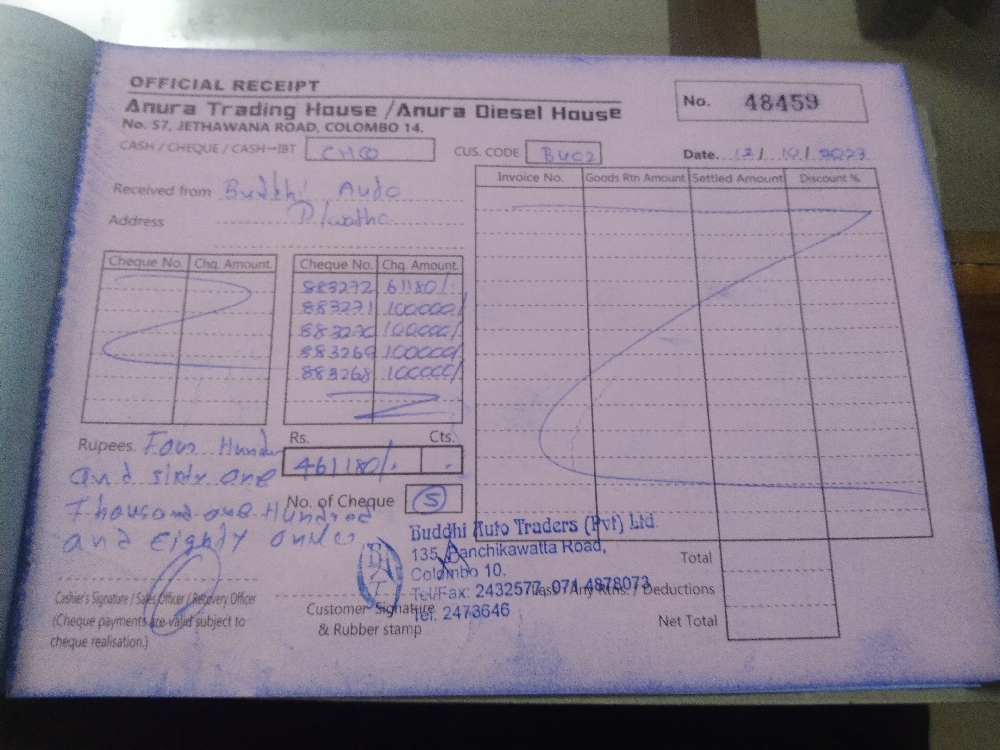 OFFICIAL RECEIPT
Anura Trading House / Anura Diesel House
No. 57, JETHAWANA ROAD, COLOMBO 14.
No. 48459
CASH / CHEQUE / CASH-IBT CHQ
CUS. CODE BU02
Date. 12/10/2023
Received from Buddhi Auto
Address P/watha
Invoice No. Goods Rtn Amount Settled Amount Discount %
Cheque No. Chq. Amount
Cheque No. Chq. Amount
883272 61180/-
883271 100000/-
883270 100000/-
883269 100000/-
883268 100000/-
Rs. Cts.
461180/- -
Rupees. Four Hundred
and sixty one
Thousand one Hundred
and Eighty only
No. of Cheque 5
Buddhi Auto Traders (Pvt) Ltd.
135, Panchikawatta Road,
Colombo 10.
Tel/Fax: 2432577, 071 4878073
Tel: 2473646
Cashier's Signature / Sales Officer / Recovery Officer
(Cheque payments are valid subject to
cheque realisation.)
Customer Signature
& Rubber stamp
Total
Less / Any Rtns. / Deductions
Net Total